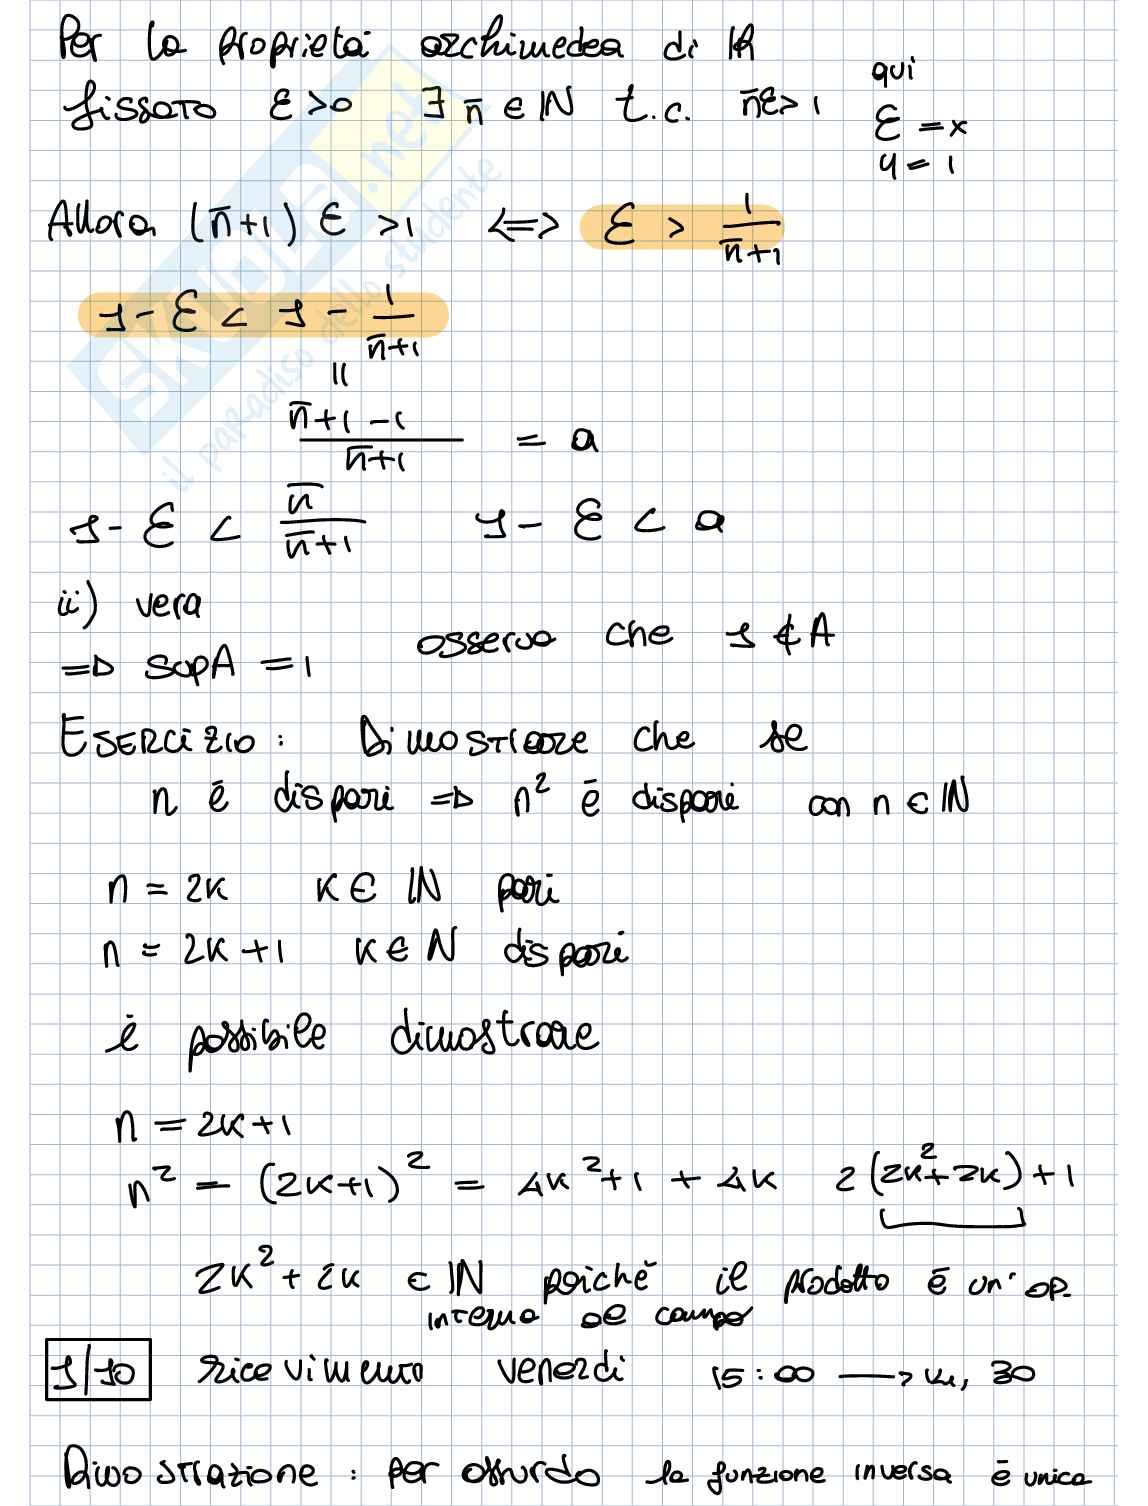 Per la proprietà archimedea di ℝ
fissato ε>0 ∃ n̄ ∈ ℕ t.c. n̄ε>1
qui
ε = x
y = 1
Allora (n̄+1) ε >1 <=> ε > 1/(n̄+1)
1-ε < 1 - 1/(n̄+1)
=
(n̄+1-1)/(n̄+1) = a
1-ε < n̄/(n̄+1) 1-ε < a
ii) vera
=> supA = 1 osservo che 1 ∉ A
ESERCIZIO: Dimostrare che se
n è dispari => n² è dispari con n ∈ ℕ
n = 2k k ∈ ℕ pari
n = 2k+1 k ∈ ℕ dispari
è possibile dimostrare
n = 2k+1
n² = (2k+1)² = 4k²+1 + 4k 2(2k²+2k)+1
2k²+2k ∈ ℕ poichè il prodotto è un' op.
interna al campo
1/10 ricevimento venerdì 15:00 → 30
Dimostrazione: per assurdo la funzione inversa è unica
skuola.net
il paradiso dello studente